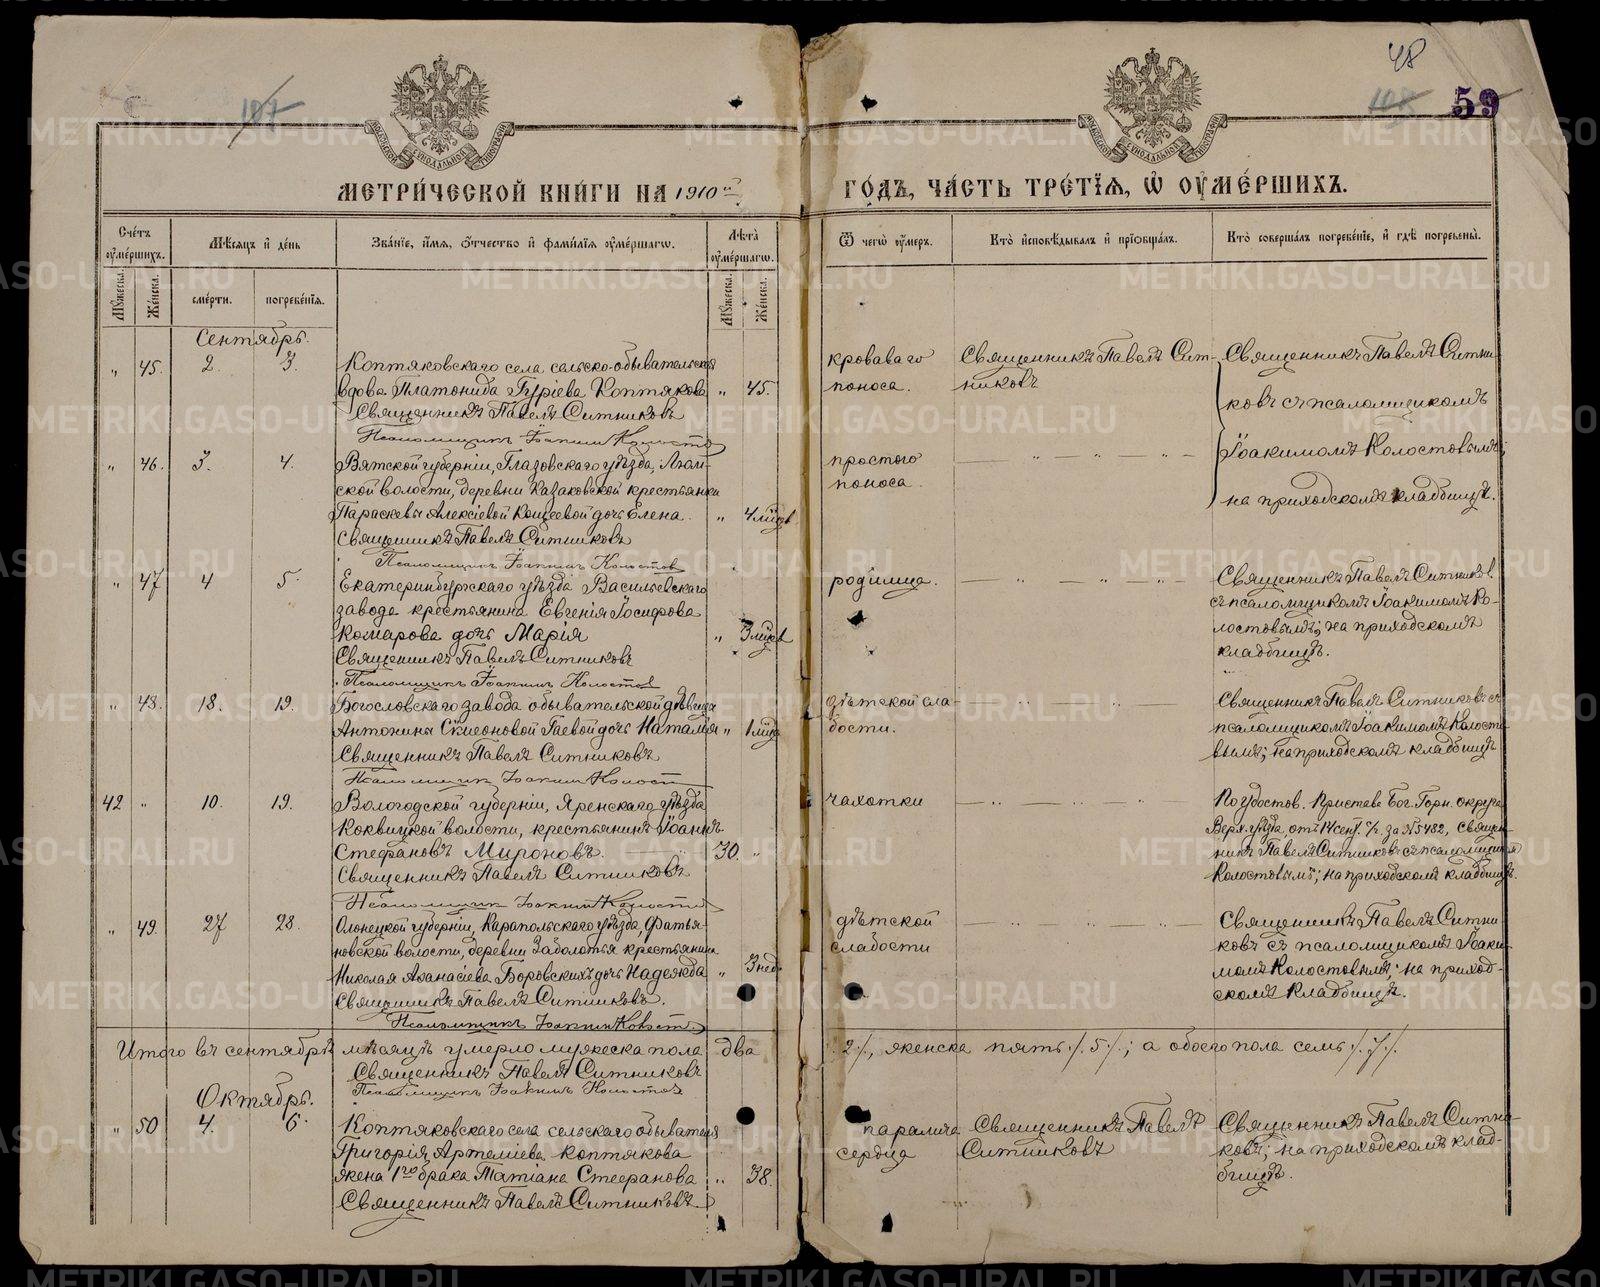 107
48
108
59
МОСКОВСКОЙ СѴНОДАЛЬНОЙ ТИПОГРАФІИ
МОСКОВСКОЙ СѴНОДАЛЬНОЙ ТИПОГРАФІИ
МЕТРИ́ЧЕСКОЙ КНИ́ГИ НА 1910й
ГО́ДЪ, ЧА́СТЬ ТРЕ́ТЇѦ, Ѽ ОУМЕ́РШИХЪ.
Сче́тъ оуме́ршихъ.
Мѣ́сѧцъ и҆ де́нь
Зва́нїе, и҆́мѧ, ѻ҆́тчество и҆ фами́лїѧ оумершагѡ.
Лѣ́та оуме́ршагѡ.
Ѿ чегѡ̀ оу҆́меръ.
Кто̀ и҆сповѣ́дывалъ и҆ прїѡбща́лъ.
Кто̀ соверша́лъ погребе́нїе, и҆ гдѣ̀ погребены̀.
Мꙋжеска.
Же́нска.
сме́рти.
погребе́нїѧ.
Мꙋжеска.
Же́нска.
Сентябрь.
" 45. 2. 3. Коптяковскаго села сельско-обывательская
вдова Платонида Гуріева Коптякова " 45.
Священникъ Павелъ Ситниковъ
Псаломщикъ Іоакимъ Колостов
кроваваго
поноса.
Священникъ Павелъ Сит-
никовъ
Священникъ Павелъ Ситни-
ковъ съ псаломщикомъ
Іоакимомъ Колостовымъ;
на приходскомъ кладбищѣ.
" 46. 3. 4. Вятской губерніи, Глазовскаго уѣзда, Люм-
ской волости, деревни Казаковской крестьянки
Параскевы Алексіевой Кощеевой дочь Елена. " 4 мѣс
Священникъ Павелъ Ситниковъ
Псаломщикъ Іоакимъ Колостов
простого
поноса.
— " — " — " —
" 47 4 5. Екатеринбургскаго уѣзда Васильевскаго
завода крестьянина Евгенія Іосифова
Комарова дочь Марія " 3 мѣс
Священникъ Павелъ Ситниковъ
Псаломщикъ Іоакимъ Колостов
родимца.
— " — " — " —
Священникъ Павелъ Ситниковъ
съ псаломщикомъ Іоакимомъ Ко-
лостовымъ; на приходскомъ
кладбищѣ.
" 48. 18. 19. Богословскаго завода обывательской дѣвицы
Антонины Симеоновой Гаевой дочь Наталія " 1 мѣс
Священникъ Павелъ Ситниковъ
Псаломщик Іоаким Колост
дѣтской сла-
бости.
— " — " —
Священникъ Павелъ Ситниковъ съ
псаломщикомъ Іоакимомъ Колосто-
вымъ; на приходскомъ кладбищѣ
42 " 10. 19. Вологодской губерніи, Яренскаго уѣзда
Коквицкой волости, крестьянинъ Іоаннъ
Стефановъ Мироновъ. 30. "
Священникъ Павелъ Ситниковъ
Псаломщик Іоаким Колостов
чахотки
— " — " — " —
По удостов. Пристава Бог. Горн. округа
Верх. уѣзда, отъ 14 сент. с/г. за №5482, священ-
никъ Павелъ Ситниковъ съ псаломщикомъ
Колостовымъ; на приходскомъ кладбищѣ.
" 49. 27 28. Олонецкой губерніи, Каргопольскаго уѣзда, Фатья-
новской волости, деревни Заболотья крестьянина
Николая Аѳанасіева Боровскихъ дочь Надежда " 3 нед
Священникъ Павелъ Ситниковъ.
Псаломщикъ Іоакимъ Колост
дѣтской
слабости
— " — " — " —
Священникъ Павелъ Ситни-
ковъ съ псаломщикомъ Іоаки-
момъ Колостовымъ; на приход-
скомъ кладбищѣ.
Итого въ сентябрѣ мѣсяцѣ умерло мужеска пола два /.2./, женска пять /.5./.; а обоего пола семь /.7./.
Священникъ Павелъ Ситниковъ
Псаломщикъ Іоакимъ Колостов
Октябрь.
" 50 4. 6. Коптяковскаго села сельскаго обывателя
Григорія Артеміева Коптякова
жена 1го брака Татіана Стефанова " 38.
Священникъ Павелъ Ситниковъ
паралича
сердца
Священникъ Павелъ
Ситниковъ
Священникъ Павелъ Ситни-
ковъ; на приходскомъ клад-
бищѣ.
METRIKI.GASO-URAL.RU